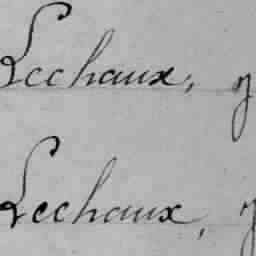 Lechaux, y
Lechaux, y